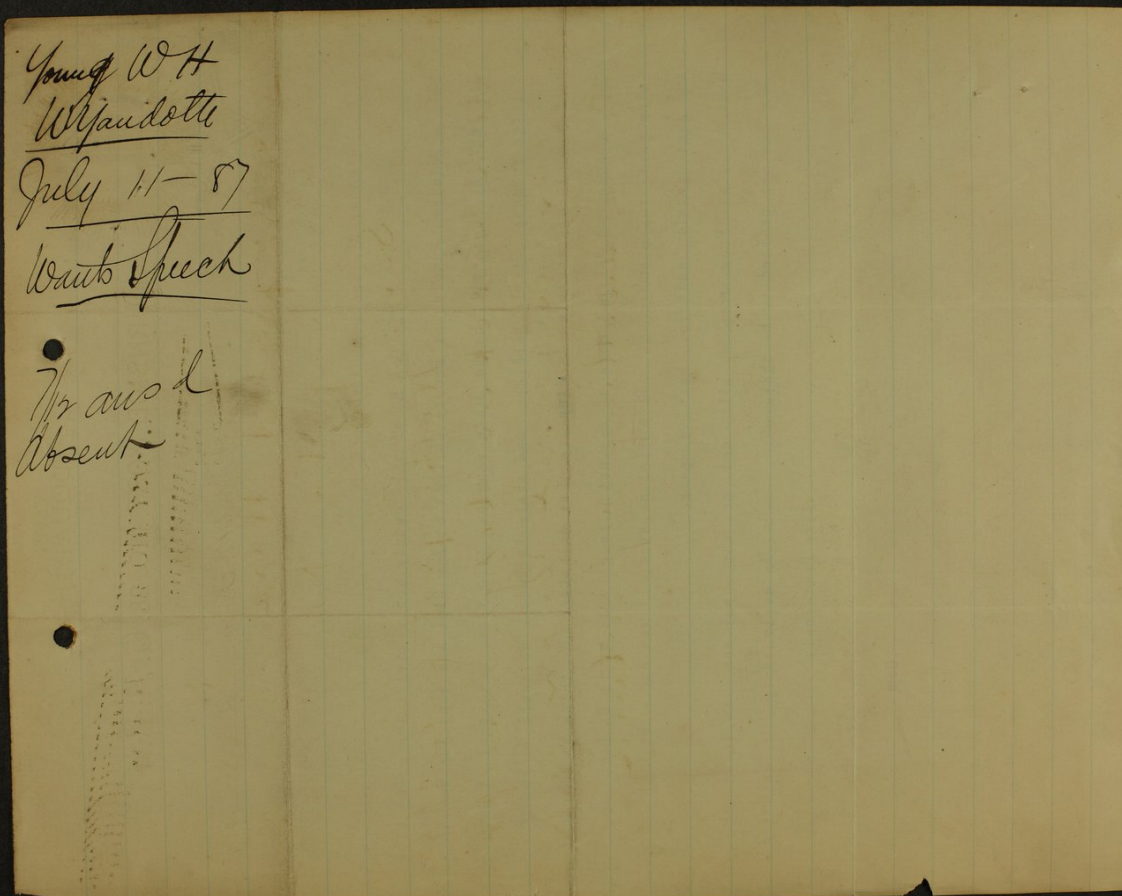 Young W H
Wyandotte
July 11 - 87
Wants Speech
7/12 ansd
Absent